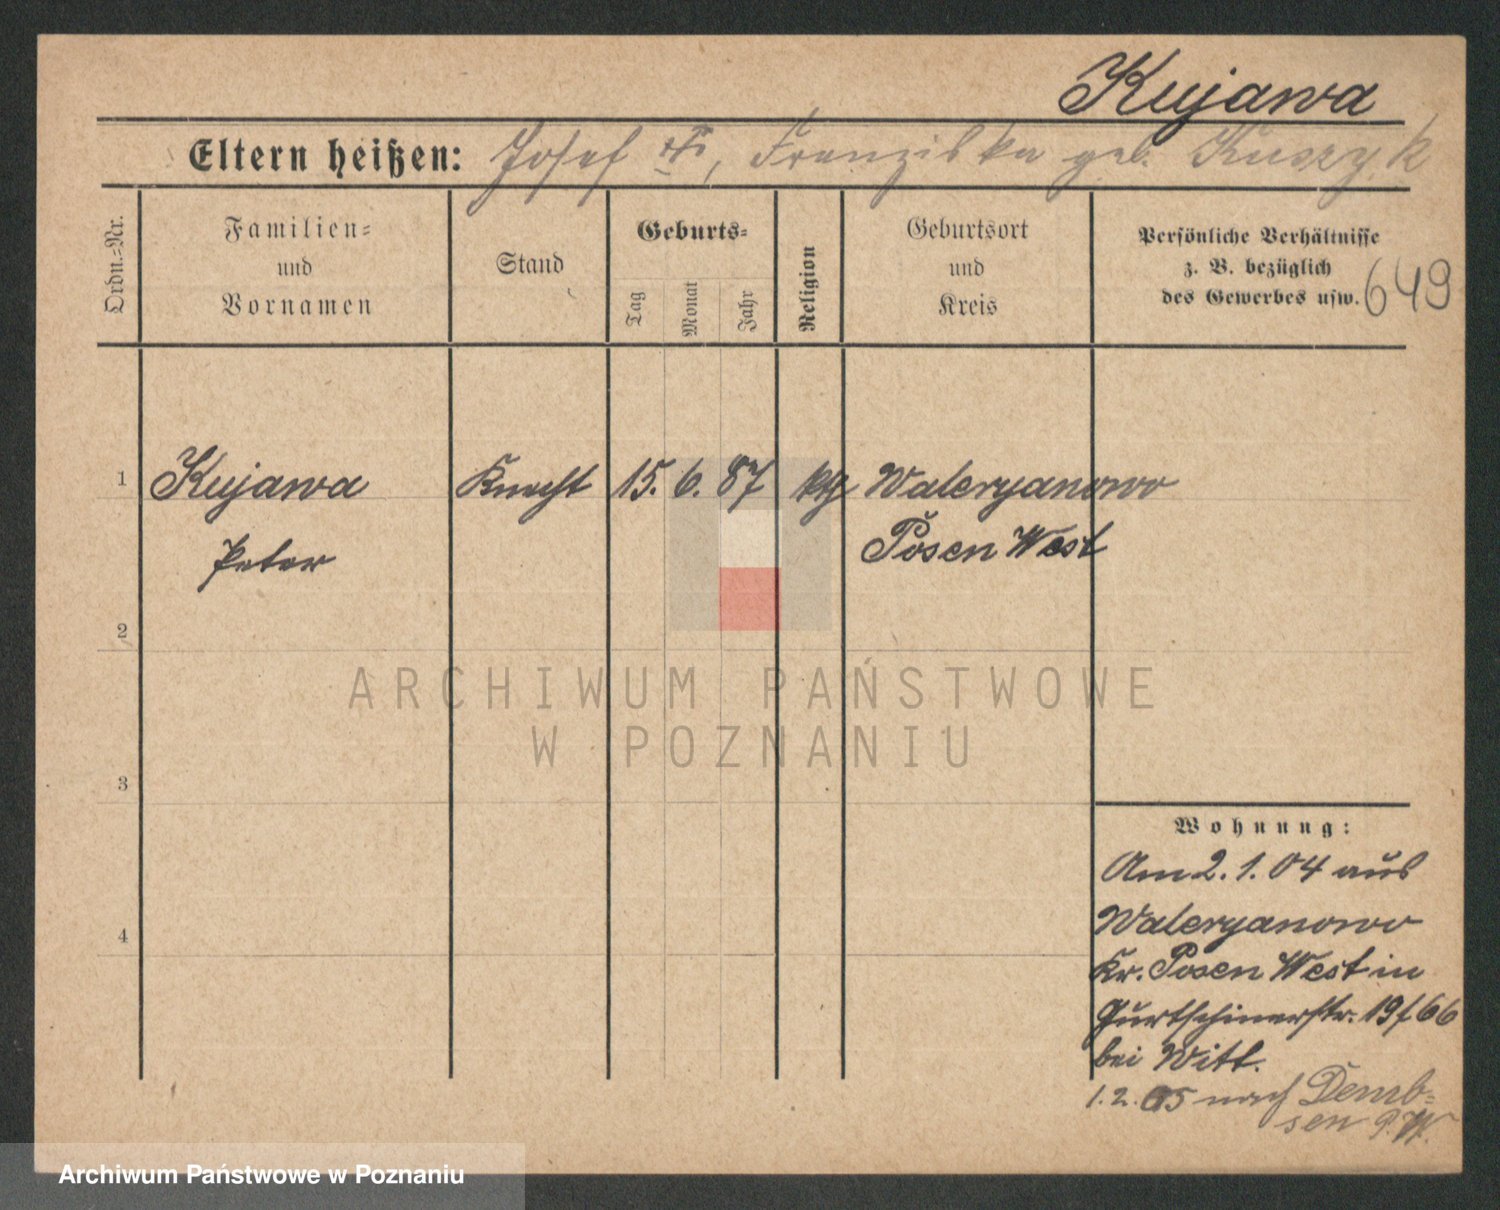 Kujawa
Eltern heißen: Josef, Franziska geb. Kuszyk
Ordn.=Nr.
Familien=
und
Vornamen
Stand
Geburts=
Tag
Monat
Jahr
Religion
Geburtsort
und
Kreis
Persönliche Verhältnisse
z. B. bezüglich
des Gewerbes usw.
649
1 Kujawa Knecht 15. 6. 87 kth Waleryanowo
Peter Posen West
2
3
4
ARCHIWUM PAŃSTWOWE
W POZNANIU
Wohnung:
Am 2. 1. 04 aus
Waleryanowo
Kr. Posen West in
Gurtschinerstr. 19/66
bei Witt.
1. 2. 05 nach Demb=
sen P. W.
Archiwum Państwowe w Poznaniu